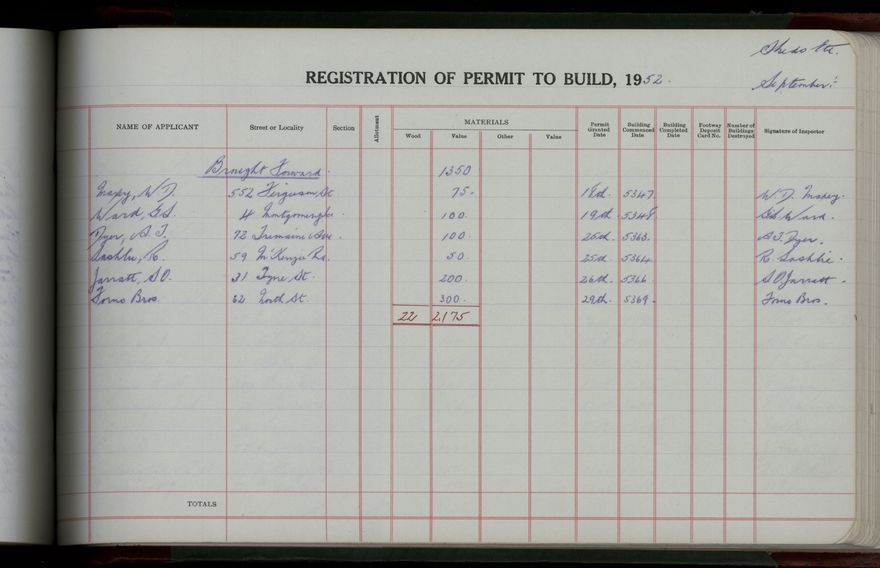 Sheds Etc.
REGISTRATION OF PERMIT TO BUILD, 1952.
September:
NAME OF APPLICANT Street or Locality Section Allotment MATERIALS Wood Value Other Value Permit Granted Date Building Commenced Date Building Completed Date Footway Deposit Card No. Number of Buildings Destroyed Signature of Inspector
Brought Forward. 1350
W.D. 552 Ferguson St 75. 18th. 5347 W.D.
Ward, G.S. 4 100. 19th. 5348 G.S. Ward.
Dyer, A.J. 72 Tremaine Ave. 100. 25th. 5363. A.J. Dyer.
R. 59 McKenzie Rd. 50. 25th 5364 R.
Jarratt, S.O. 31 Tyne St. 200. 26th. 5366 S.O. Jarratt.
Bros 62 North St. 300. 29th. 5369. Bros.
22 2175
TOTALS